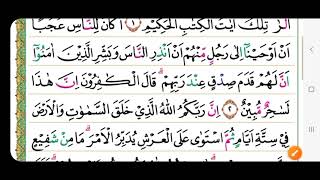 الٓرٰ تِلْكَ اٰيٰتُ الْكِتٰبِ الْحَكِيْمِ ﴿١﴾ اَكَانَ لِلنَّاسِ عَجَبًا
اَنْ اَوْحَيْنَآ اِلٰى رَجُلٍ مِّنْهُمْ اَنْ اَنْذِرِ النَّاسَ وَبَشِّرِ الَّذِيْنَ اٰمَنُوْٓا
اَنَّ لَهُمْ قَدَمَ صِدْقٍ عِنْدَ رَبِّهِمْ ؕ قَالَ الْكٰفِرُوْنَ اِنَّ هٰذَا
لَسٰحِرٌ مُّبِيْنٌ ﴿٢﴾ اِنَّ رَبَّكُمُ اللّٰهُ الَّذِيْ خَلَقَ السَّمٰوٰتِ وَالْاَرْضَ
فِيْ سِتَّةِ اَيَّامٍ ثُمَّ اسْتَوٰى عَلَى الْعَرْشِ يُدَبِّرُ الْاَمْرَ ؕ مَا مِنْ شَفِيْعٍ